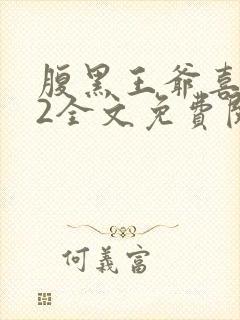 腹黑王爷喜
2全文免費閱
何義富